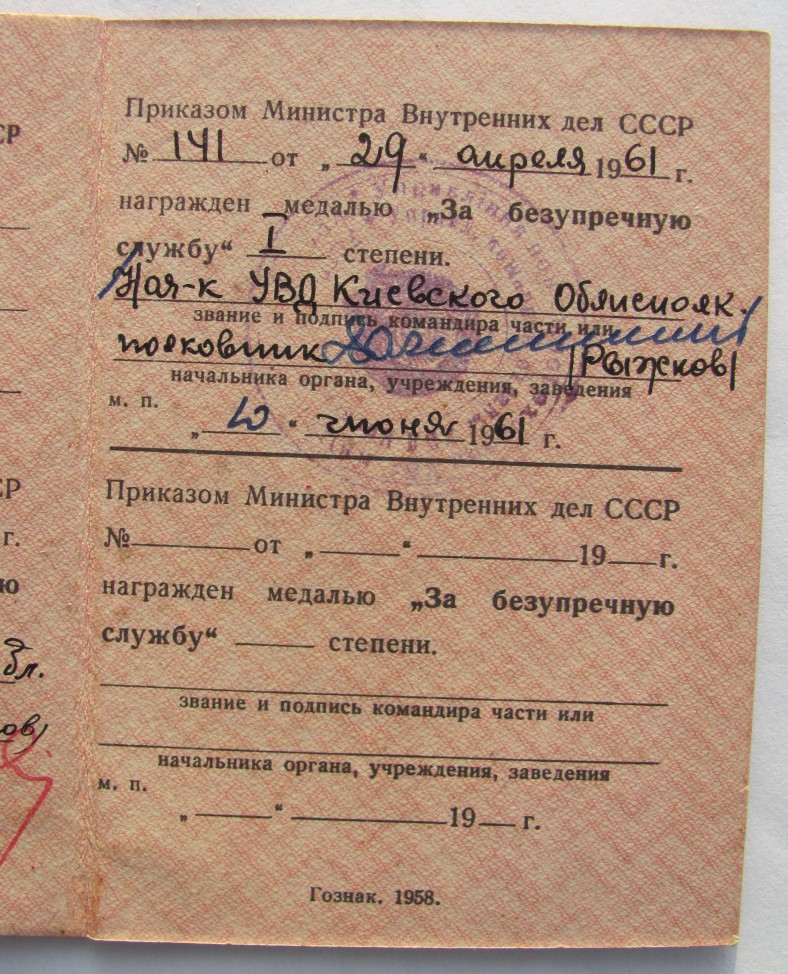 СР
г.
ю
Зл.
ов)
Приказом Министра Внутренних дел СССР
№ 141 от „29“ апреля 1961 г.
награжден медалью „За безупречную
службу“ I степени.
Нач-к УВД Киевского Облисполк.
звание и подпись командира части или
полковник /Рыжков/
начальника органа, учреждения, заведения
м. п.
„10“ июня 1961 г.
Приказом Министра Внутренних дел СССР
№ от „ “ 19 г.
награжден медалью „За безупречную
службу“ степени.
звание и подпись командира части или
начальника органа, учреждения, заведения
м. п.
„ “ 19 г.
Гознак. 1958.